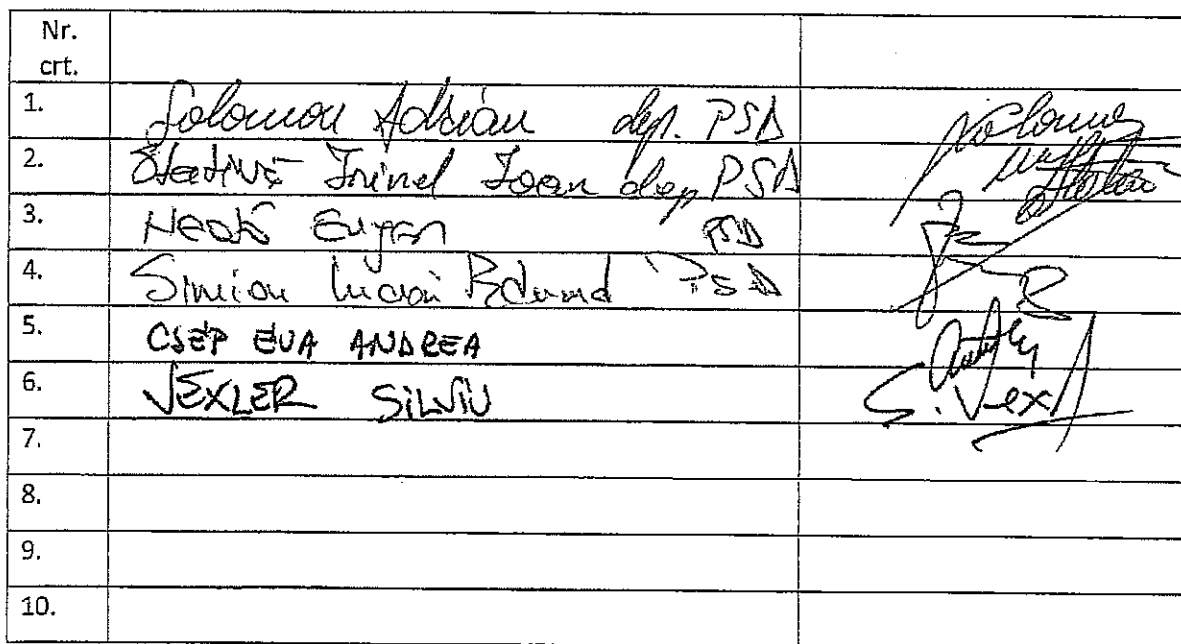 Nr.
crt.
1. Solomon Adrian dep. PSD
2. Stativă Irinel Ioan dep PSD
3. Neață Eugen PSD
4. Simion Lucian Eduard PSD
5. CSEP EVA ANDREA
6. VEXLER SILVIU S. Vex
7.
8.
9.
10.